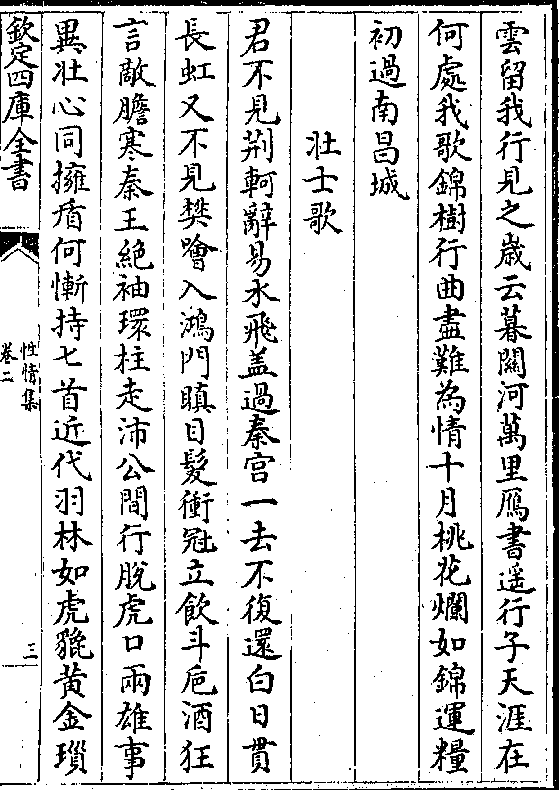 雲留我行見之歲云暮關河萬里鴈書遥行子天涯在
何處我歌錦樹行曲盡難為情十月桃花爛如錦運糧
初過南昌城
壯士歌
君不見荆軻辭易水飛盖過秦宫一去不復還白日貫
長虹又不見樊噲入鴻門瞋目髮衝冠立飲斗巵酒狂
言敵膽寒秦王絶袖環柱走沛公間行脱虎口兩雄事
異壯心同擁盾何慚持匕首近代羽林如虎貔黄金瑣
欽定四庫全書
性情集
卷二
三